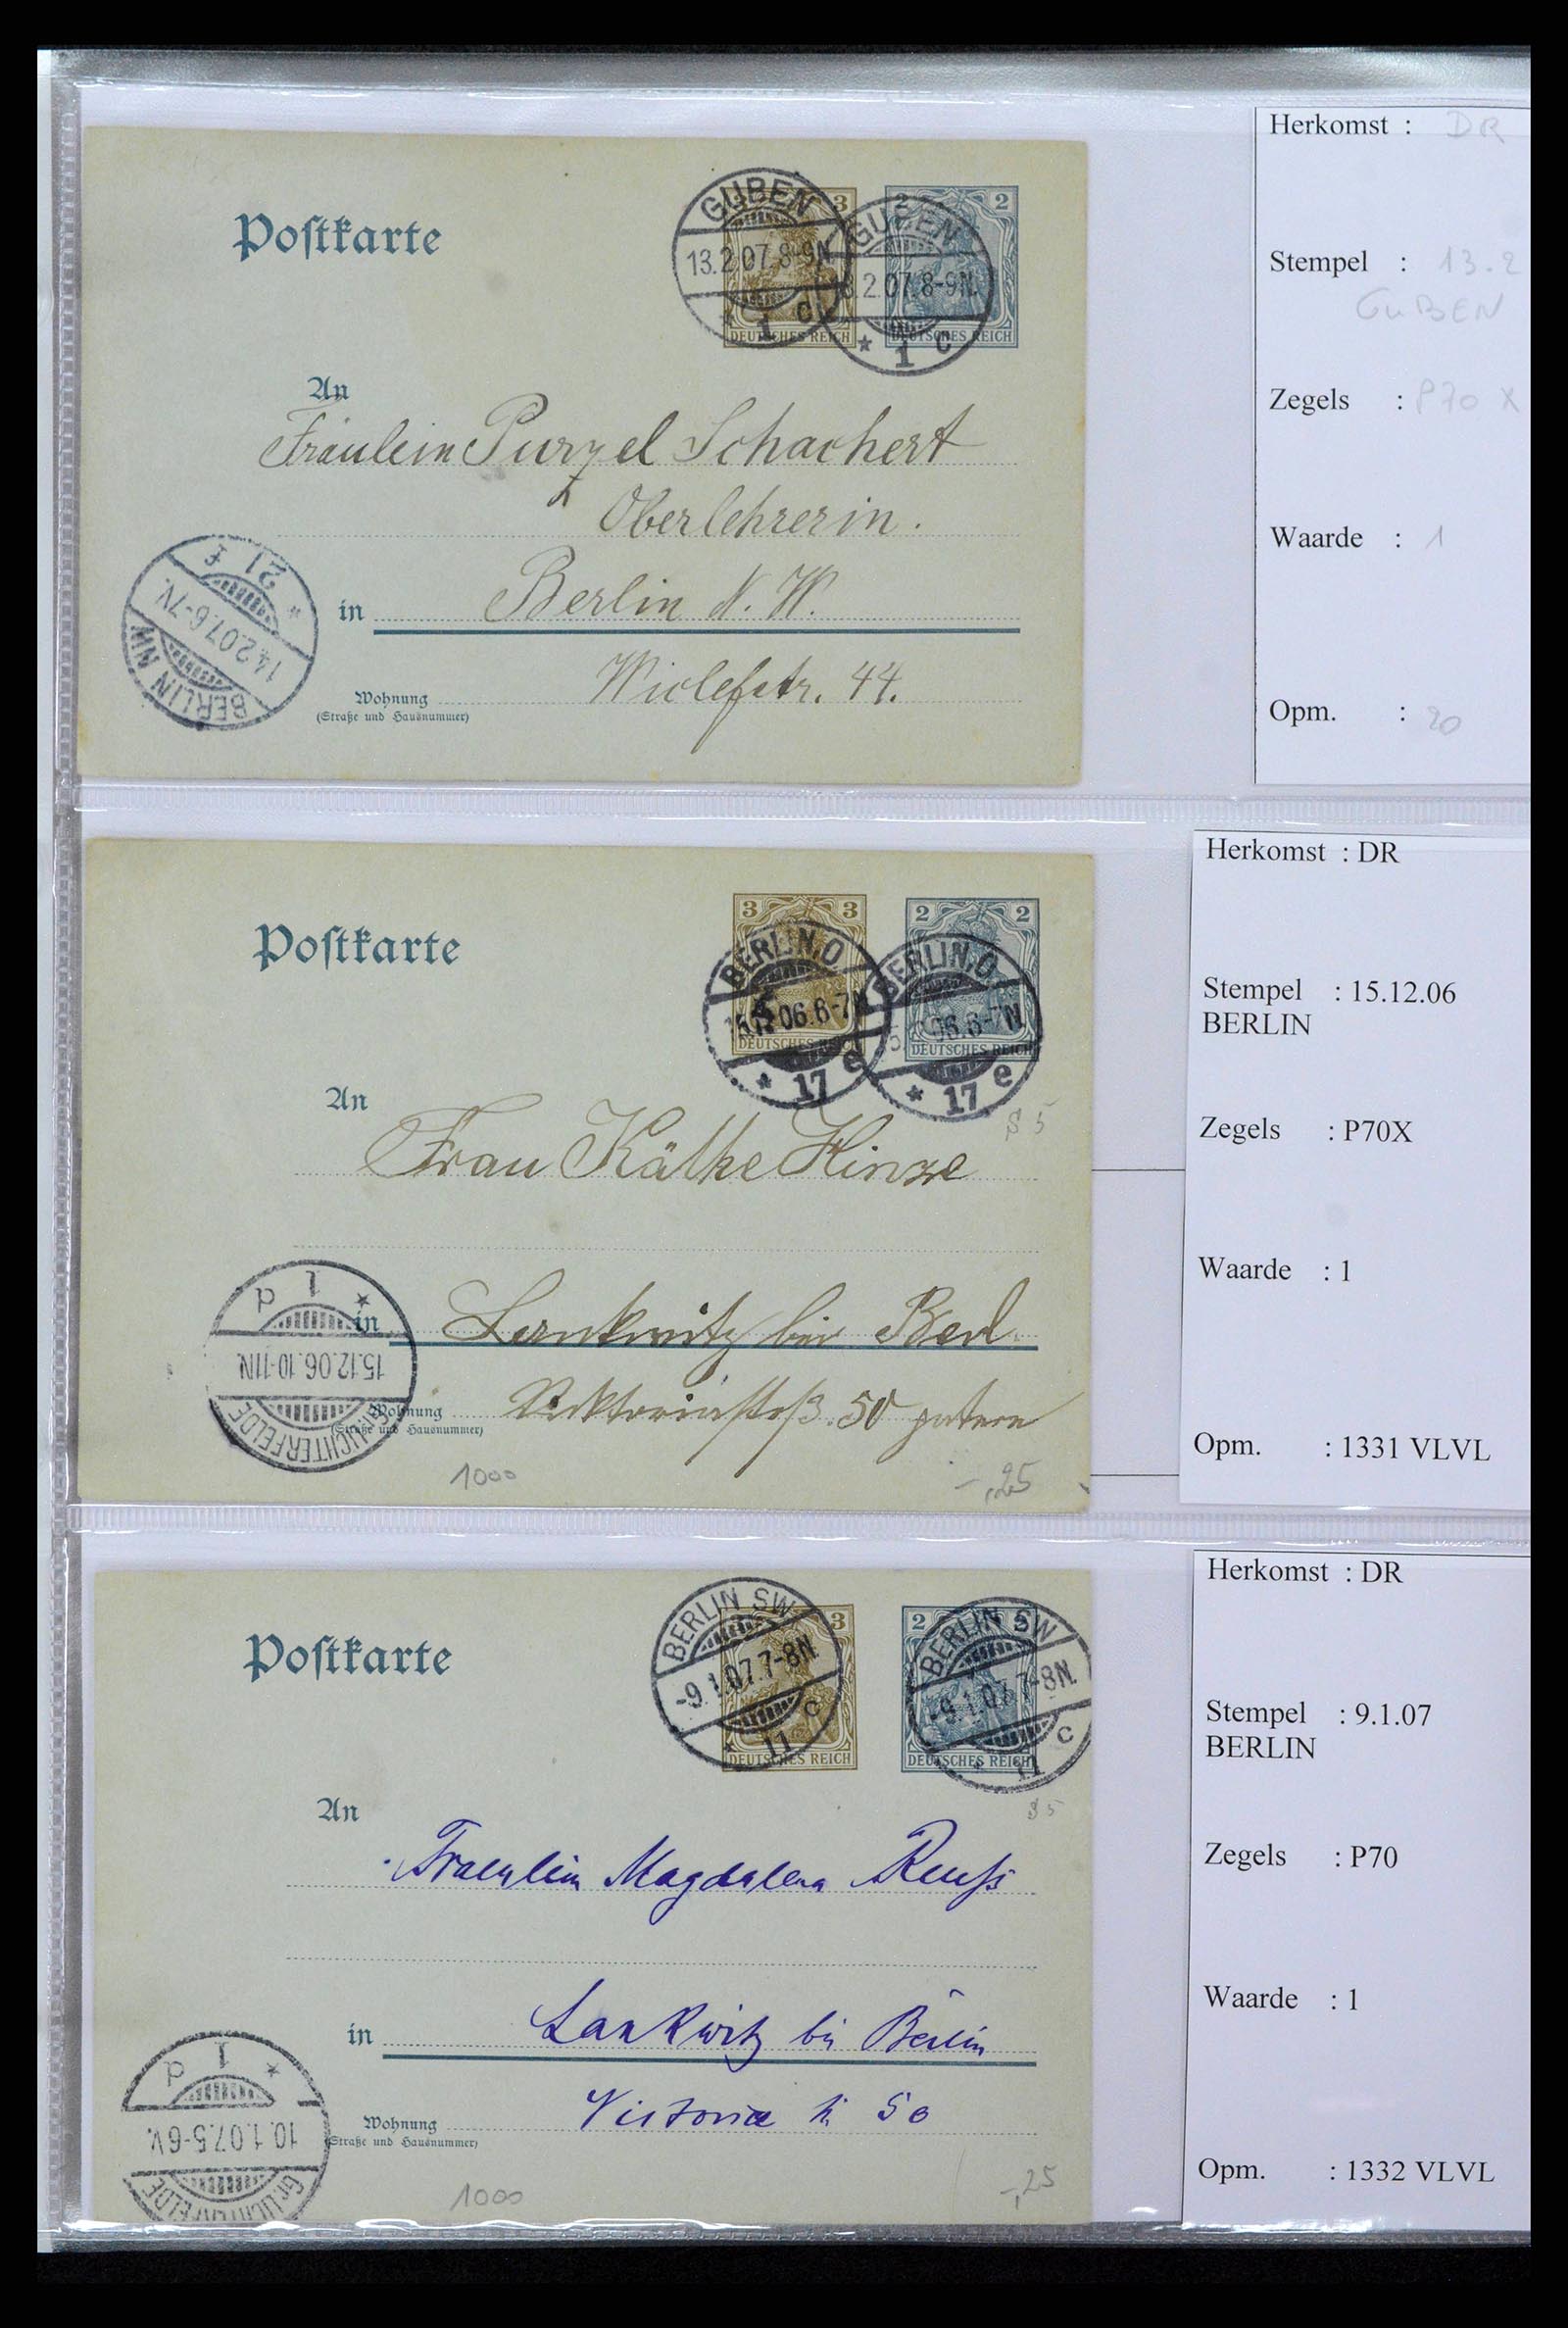 Postkarte
GUBEN
13.2.07.8-9N.
* 1 c
GUBEN
13.2.07.8-9N.
* 1 c
3
2 2
DEUTSCHES REICH
DEUTSCHES REICH
An
Fräulein Purzel Schachert
Oberlehrerin.
in Berlin N. W.
Wiclefstr. 44.
Wohnung
(Straße und Hausnummer)
BERLIN NW
14.2.07.6-7V.
* 21 f
Herkomst : DR
Stempel : 13.2
GUBEN
Zegels : P70 X
Waarde : 1
Opm. : 20
Postkarte
3 3
2 2
BERLIN.O
15.12.06.6-7N
* 17 e
BERLIN.O
06.6-7N
* 17 e
DEUTSCHES REICH
DEUTSCHES REICH
An
Frau Käthe Hinze
in Lankwitz bei Berl.
Viktoriastraß. 50
Wohnung
(Straße und Hausnummer)
* 1 d
15.12.06.10-11N.
GR. LICHTERFELDE
1000
-,25
Herkomst : DR
Stempel : 15.12.06
BERLIN
Zegels : P70X
Waarde : 1
Opm. : 1331 VLVL
Postkarte
3
2 2
BERLIN SW
-9.1.07.7-8N.
* 11 c
BERLIN SW
-9.1.07.7-8N.
* 11 c
DEUTSCHES REICH
DEUTSCHES REICH
An
Fraeulein Magdalena Reuß
in Lankwitz bei Berlin
Victoria 50
Wohnung
(Straße und Hausnummer)
* 1 d
10.1.07.5-6V.
Gr. LICHTERFELDE
1000
-,25
Herkomst : DR
Stempel : 9.1.07
BERLIN
Zegels : P70
Waarde : 1
Opm. : 1332 VLVL